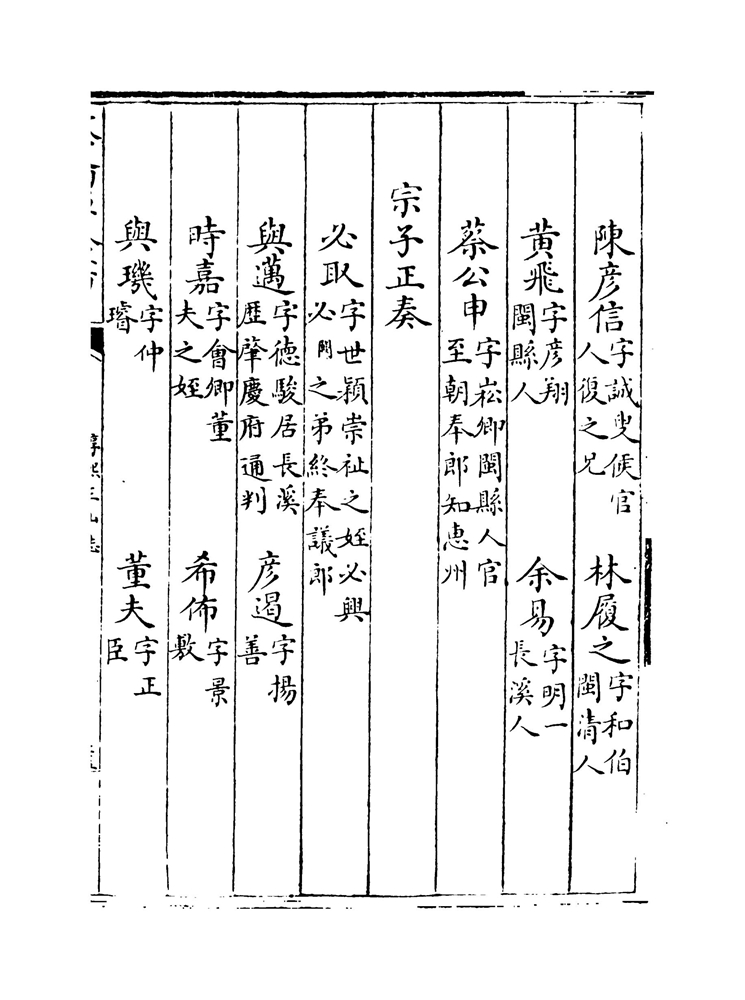 陳彦信字誠叟候官人復之兄 林履之字和伯閩清人
黄飛字彦翔閩縣人 余易字明一長溪人
蔡公申字崧卿閩縣人官至朝奉郎知惠州
宗子正奏
必取字世穎崇祉之姪必興必之弟終奉議郎
與邁字德駿居長溪歴肇慶府通判 彦遏字揚善
時嘉字會卿董夫之姪 希佈字景敷
與璣字仲璿 董夫字正臣
淳熙三山志